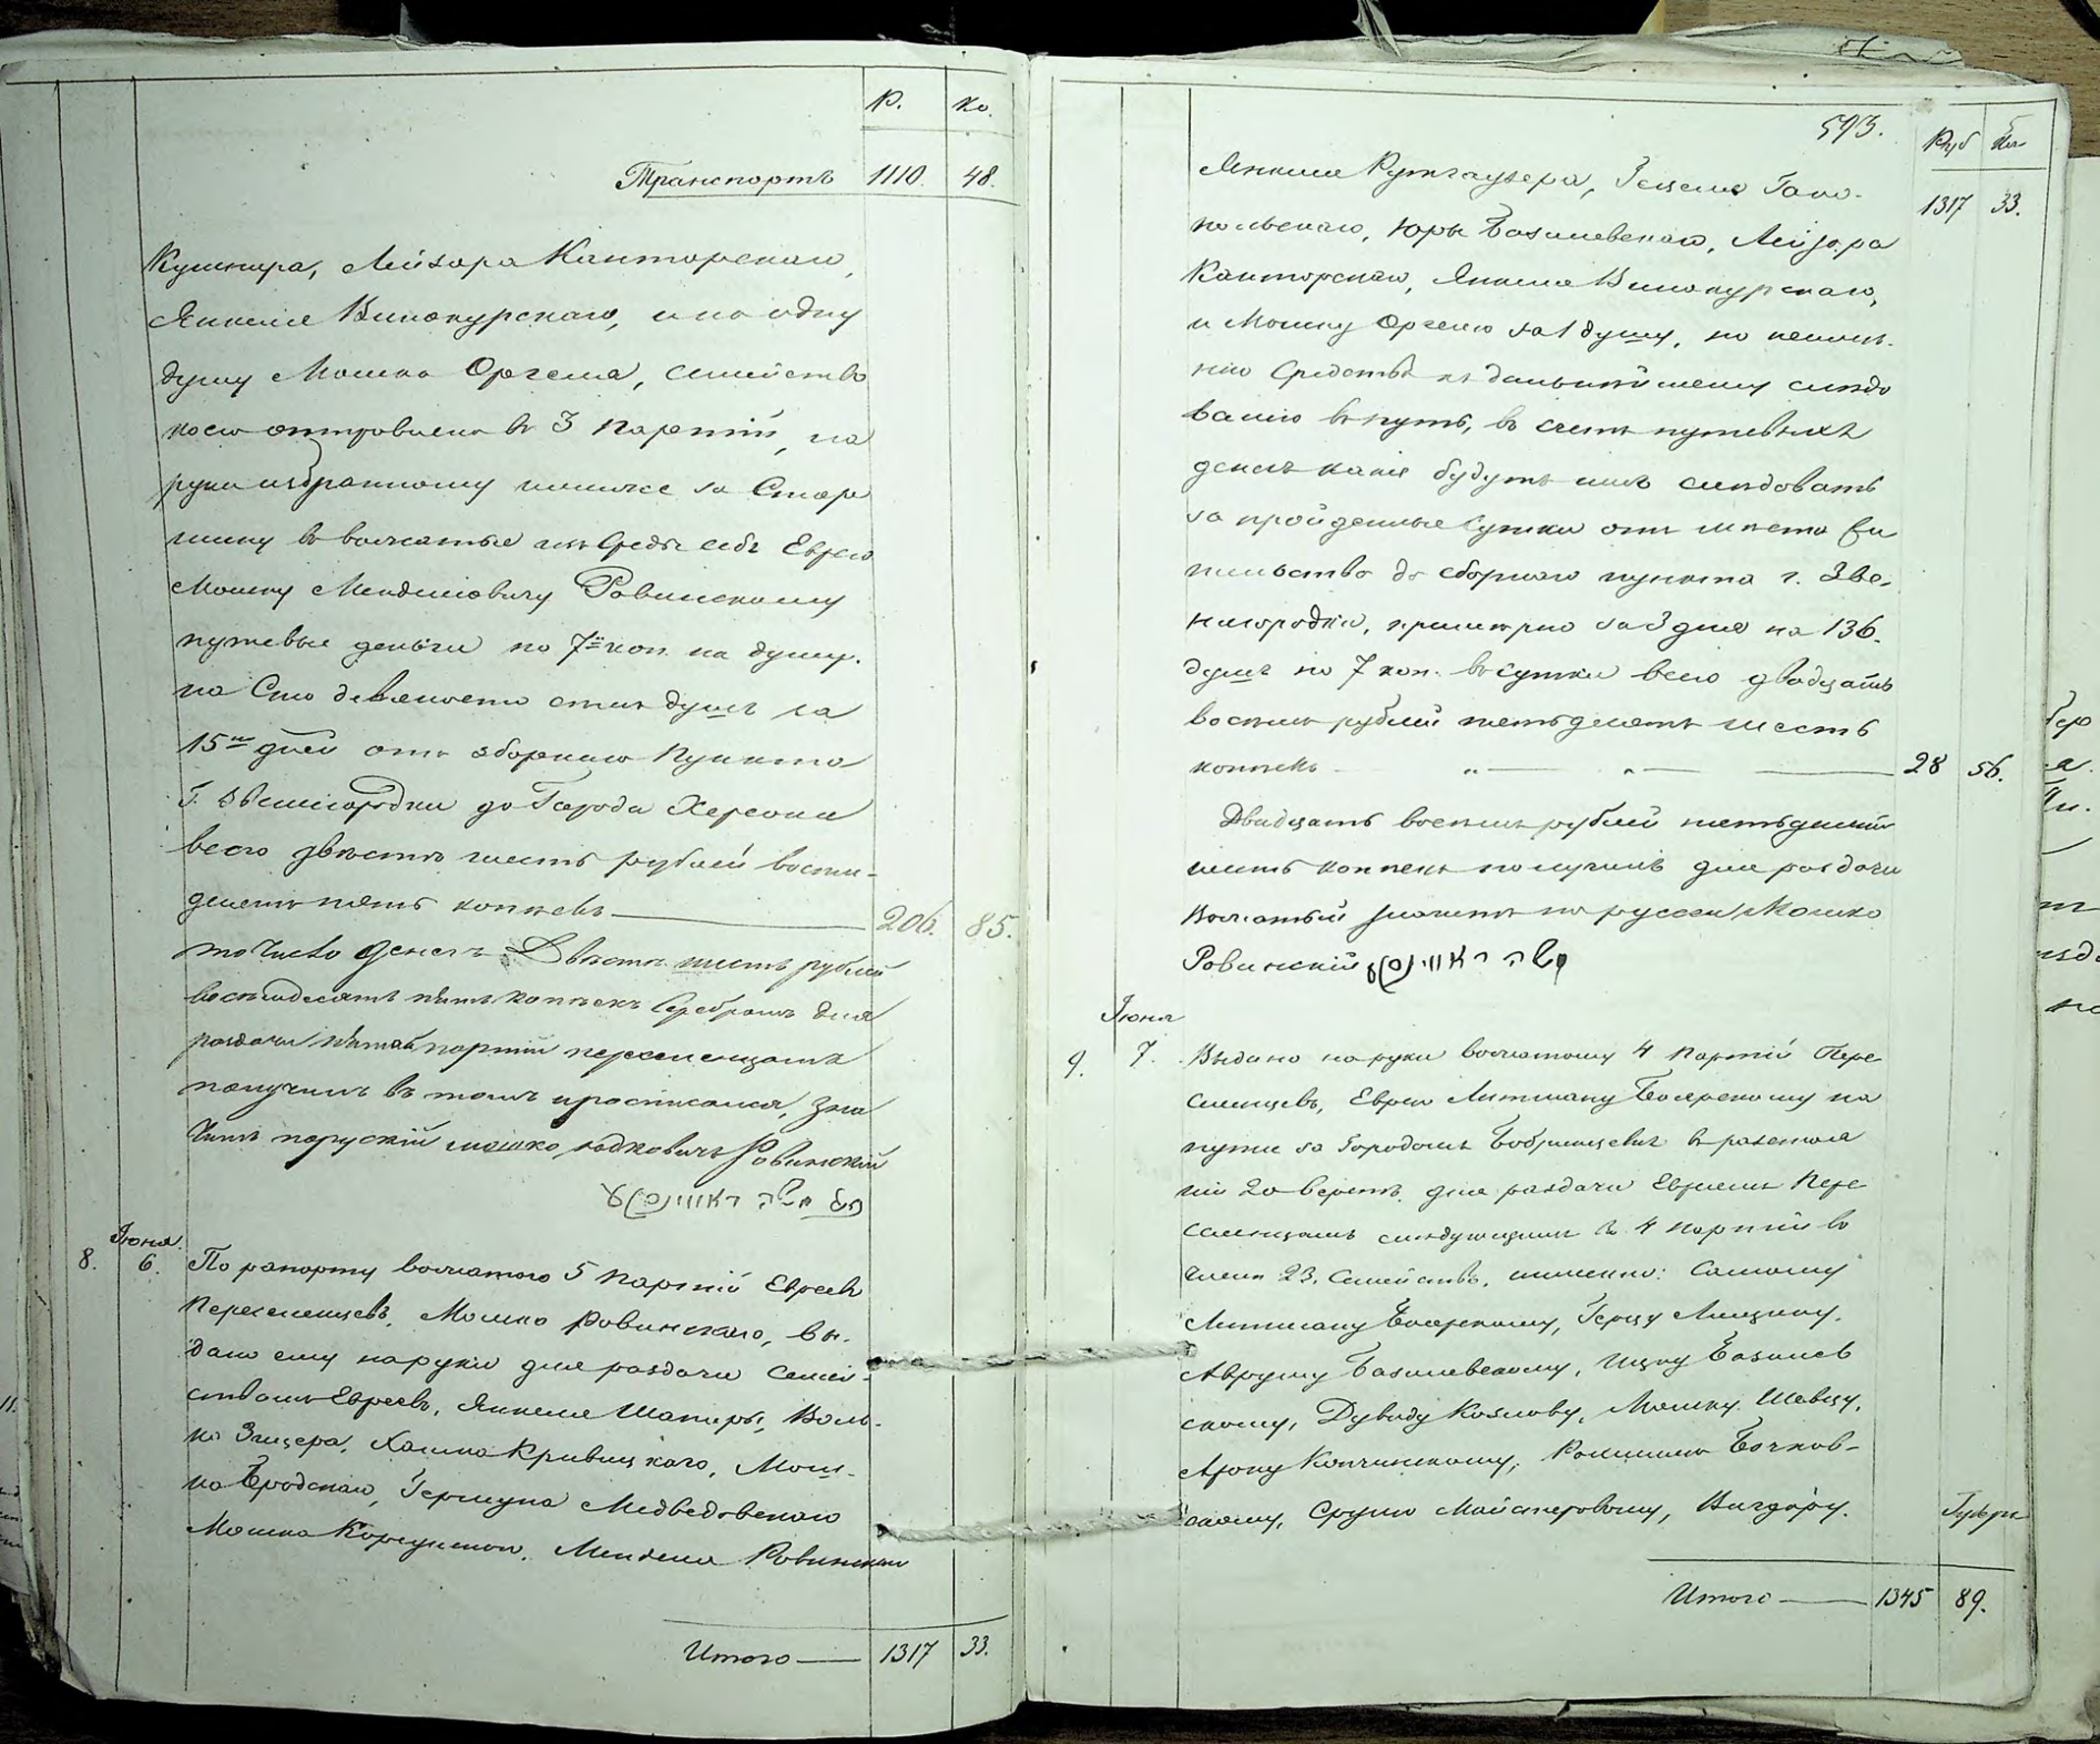 Р. Ко.
Транспортъ 1110. 48.
Кушнира, Лейзора Канторскаго,
Янкеля Винокурскаго, и на одну
душу Мошка Оргеля, семейство
коего отправлено въ 3 партіи, на
руки избранному ими же за Стар
шину въ вожатые изъ среды себя Еврею
Мошку Менделіовичу Ровинскому
путевые деньги по 7 коп. на душу.
на Сто девяносто семь душъ за
15 дней отъ зборнаго Пункта
Г. Звенигородки до Города Херсона
всего двѣсти шесть рублей восем-
десятъ пять копѣекъ 206. 85.
то число денегъ Двѣсти шесть рублей
восемдесятъ пять копѣекъ Серебромъ для
раздачи пятой партіи переселенцамъ
получилъ въ томъ и росписался, зна
читъ поруский мошко Ровинский
משה ראווינסקי
Іюня
8. 6. По рапорту вожатого 5 Партіи Евреевъ
Переселенцевъ, Мошка Ровинскаго, вы-
дано ему на руки для раздачи Семей-
ствамъ Евреевъ, Янкеля Шапиры, Воль-
ка Зицера, Хаима Кривицкаго, Мош-
ка Бродскаго, Гершуна Медведовскаго
Мошка Корсунскаго, Менделя Ровинскаго
Итого 1317 33.
593. Руб Коп
Янкеля Рутгаузера, Гецеля Тано- 1317 33.
польскаго, Юры Базилевскаго, Лейзора
Канторскаго, Янкеля Винокурскаго,
и Мошку Оргелю за 1 душу, по неимѣ-
нію Средствъ къ дальнѣйшему слѣдо
ванію въ путь, въ счетъ путевыхъ
денегъ какія будутъ имъ слѣдовать
за пройденные Сутки отъ мѣста жи
тельства до сборнаго пункта г. Зве-
нигородки, примѣрно за 3 дня на 136.
душъ по 7 коп. въ сутки всего двадцать
восемь рублей пятьдесятъ шесть
копѣекъ 28 56.
Двадцать восемь рублей пятьдесятъ
шесть копѣекъ получилъ для раздачи
Вожатый значитъ по русски Мошко
Ровинскій משה ראווינסקי
Іюня
9. 7. Выдано на руки вожатому 4 Партіи Пере
селенцевъ, Еврею Литману Боярскому на
пути за Городомъ Бобринцемъ въ разстоя
ніи 20 верстъ для раздачи Евреямъ Пере
селенцамъ слѣдующимъ въ 4 партіи въ
числѣ 23. Семействъ, именно: Самому
Литману Боярскому, Герцу Лищину,
Авруму Базилевскому, Ицку Базилев
скому, Дувиду Козлову, Мошку Шевцу,
Арону Копчинскому, Бочков-
скому, Срулю Майстровому, Вигдору.
Итого 1345 89.